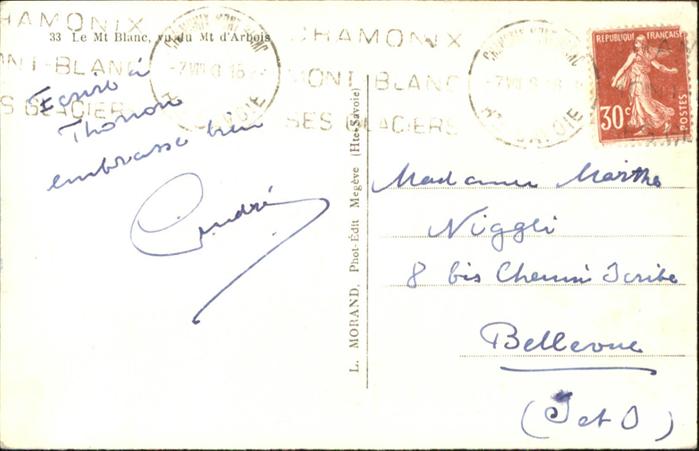 CHAMONIX
MONT-BLANC
SES GLACIERS
33 Le Mt Blanc, vu du Mt d'Arbois
CHAMONIX MONT-BLANC
-7 VIII 3 16
HTE SAVOIE
CHAMONIX
MONT-BLANC
SES GLACIERS
CHAMONIX MONT-BLANC
-7 VIII 3
HTE SAVOIE
REPUBLIQUE FRANÇAISE
30c
POSTES
Ecrire à
Thonon
embrasse bien
André
L. MORAND, Phot-Édit Megève (Hte-Savoie)
Madame Marthe
Niggli
8 bis Chemin Scribe
Bellevue
(S et O)